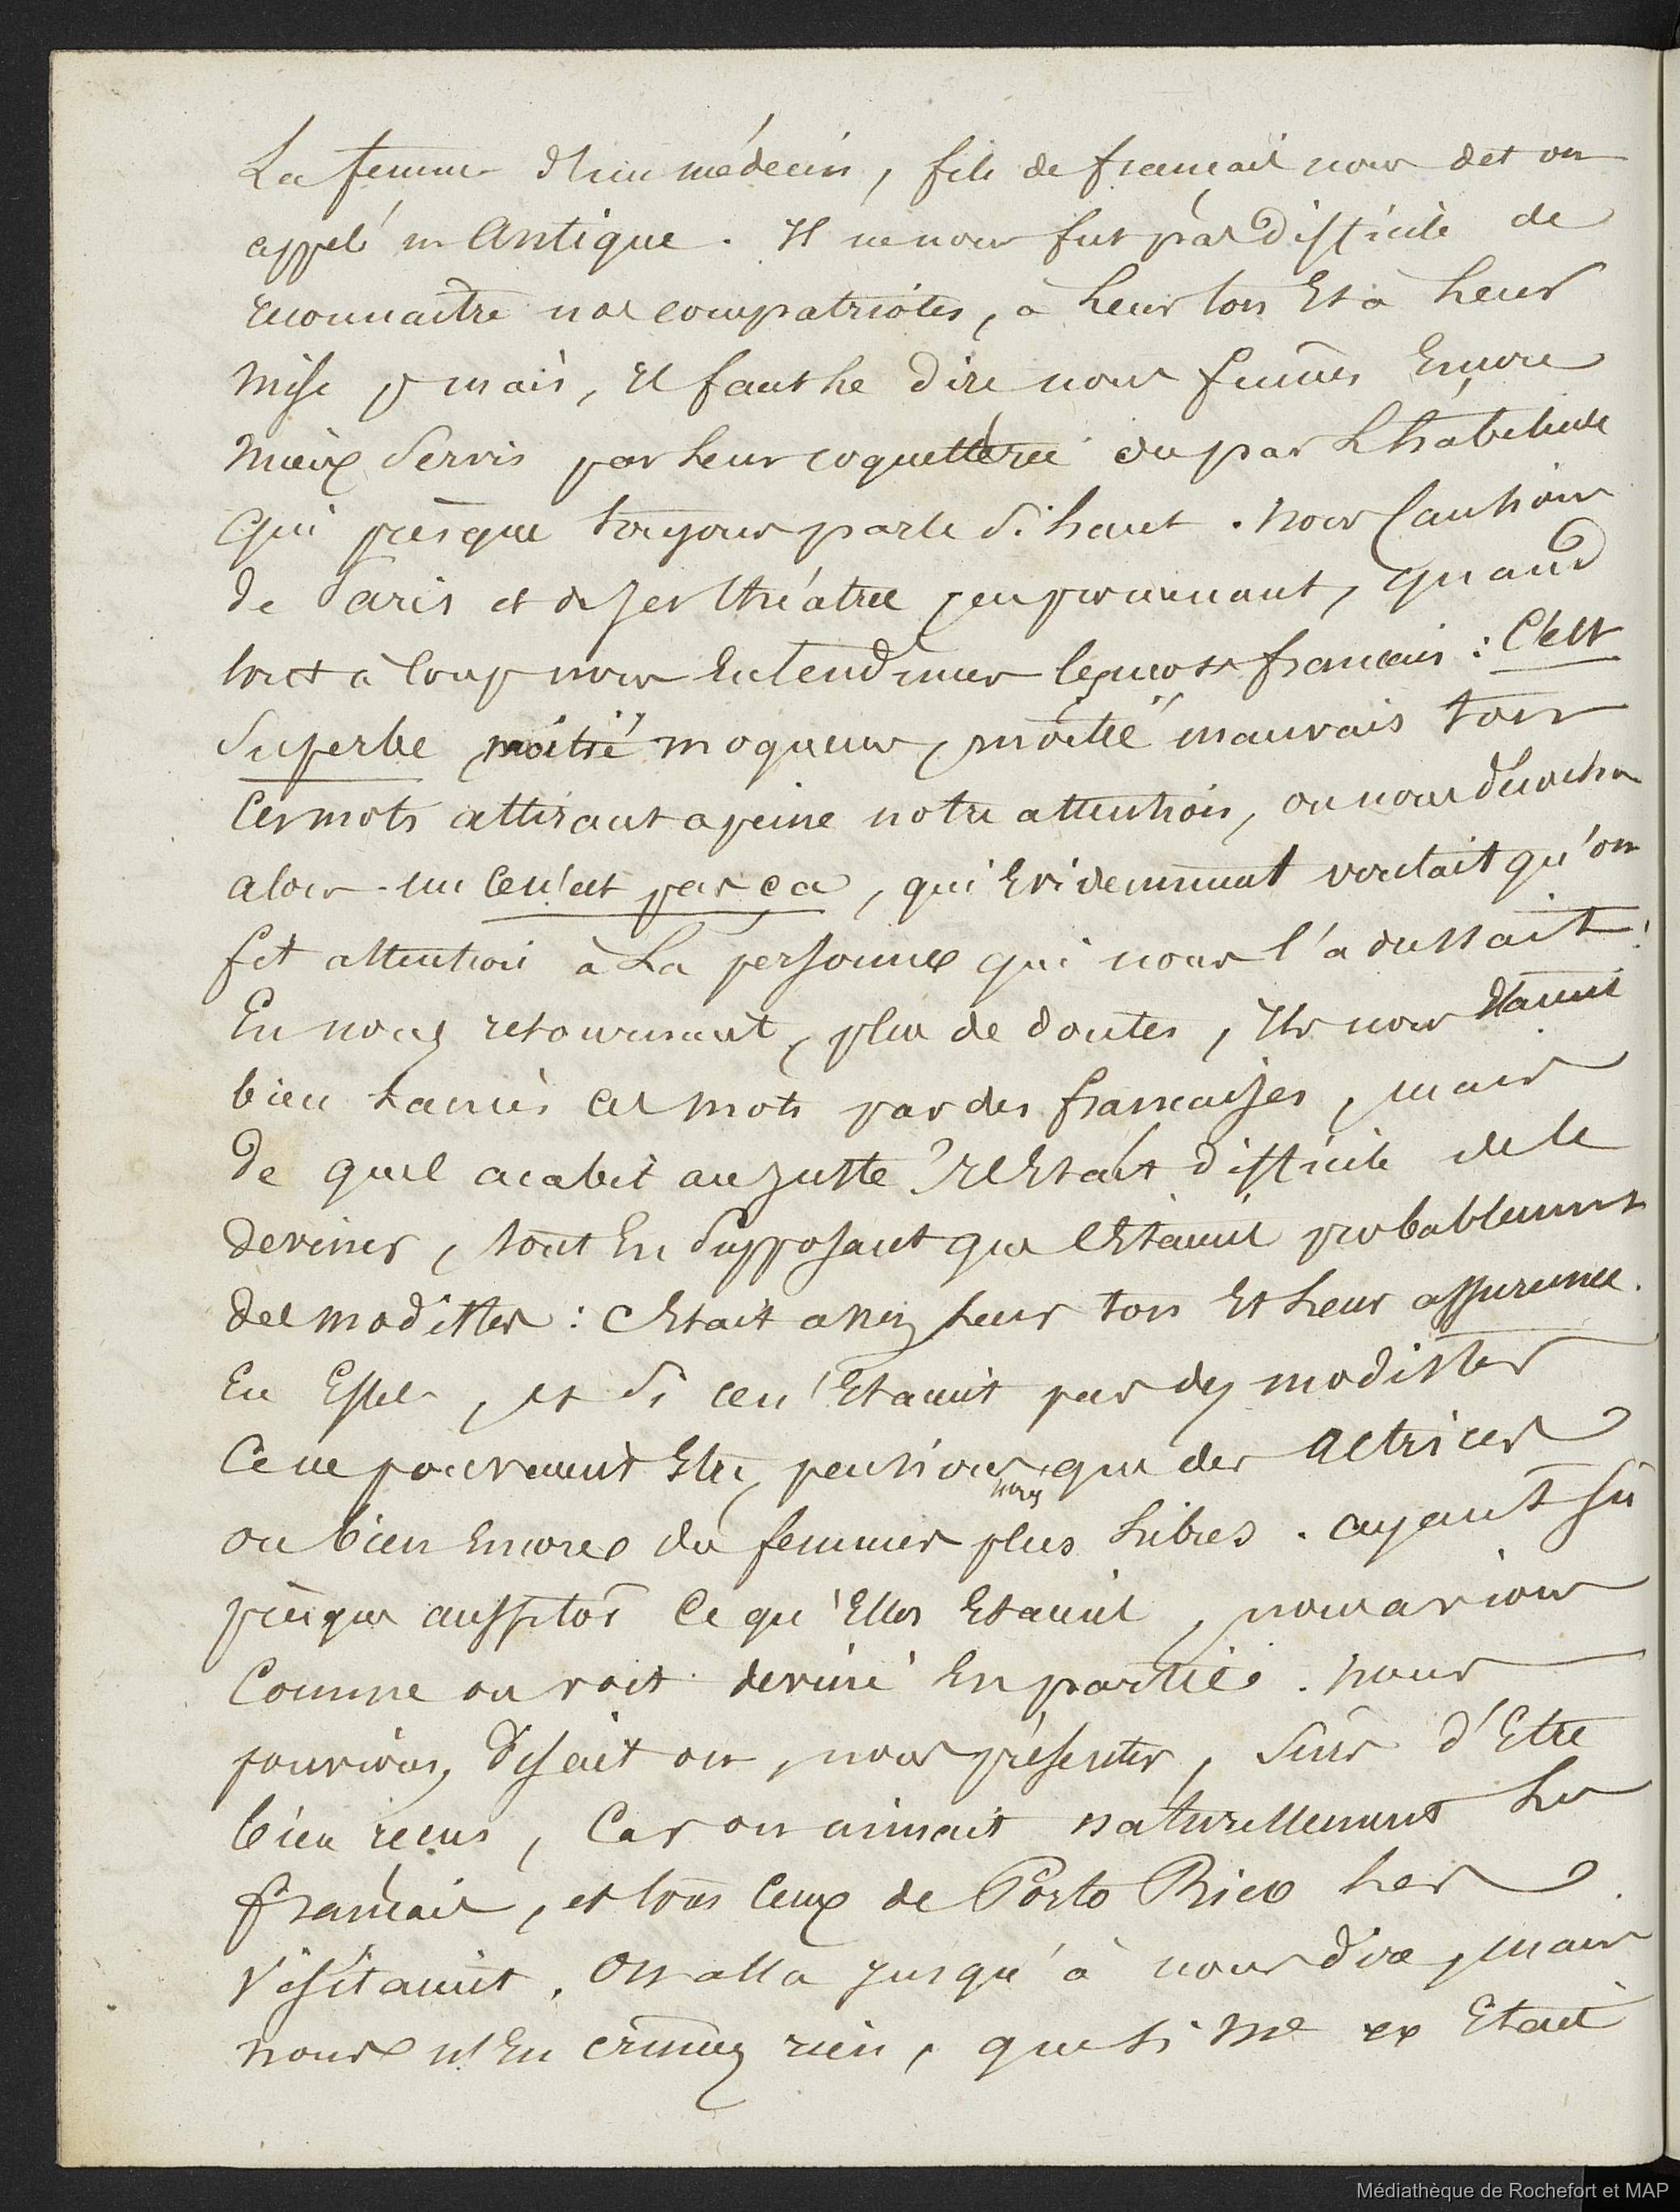 La femme d'un médecin, fils de français nous dit on
appelé m Antique. Il ne nous fut pas difficile de
reconnaitre nos compatriotes, à Leur ton Et à Leur
Mise, mais, il faut Le dire nous fumes Encore
Mieux Servis par Leur coquetterie ou par L'habitude
qui presque toujours parle Si haut. Nous Causions
de Paris et de ses théatres, en promenant, quand
tout à Coup nous Entendimes les mots français : C'est
Superbe, moitié moqueur, moitié mauvais ton
Ces mots attirant a peine notre attention, on nous décocha
alors un Ce n'est pas ça, qui Evidemment voulait qu'on
fit attention à La personne qui nous l'adressait.
En nous retournant, plus de doutes, Ils nous Etaient
bien Lancés ces mots par des françaises, mais
de quel acabit au juste ? Il Etait difficile de le
deviner, tout En Supposant que C'Etaient probablement
des modistes : C'Etait assez Leur ton Et Leur assurance.
En Effet, et Si ce n'Etaient pas des modistes
Ce ne pouvaient Etre, pensions nous, que des Actrices
ou bien Encore des femmes plus Libres. ayant Su
presque aussitôt Ce qu'Elles Etaient, nous avions
Comme on voit deviné En partie. Nous
pouvions, disait on, nous présenter, Surs d'Etre
bien reçus, Car on aimait naturellement Les
français, et tous Ceux de Porto Rico Les
visitaient. On alla jusqu'à nous dire, mais
nous n'En crumes rien, que Si Me xx Etait
Médiathèque de Rochefort et MAP